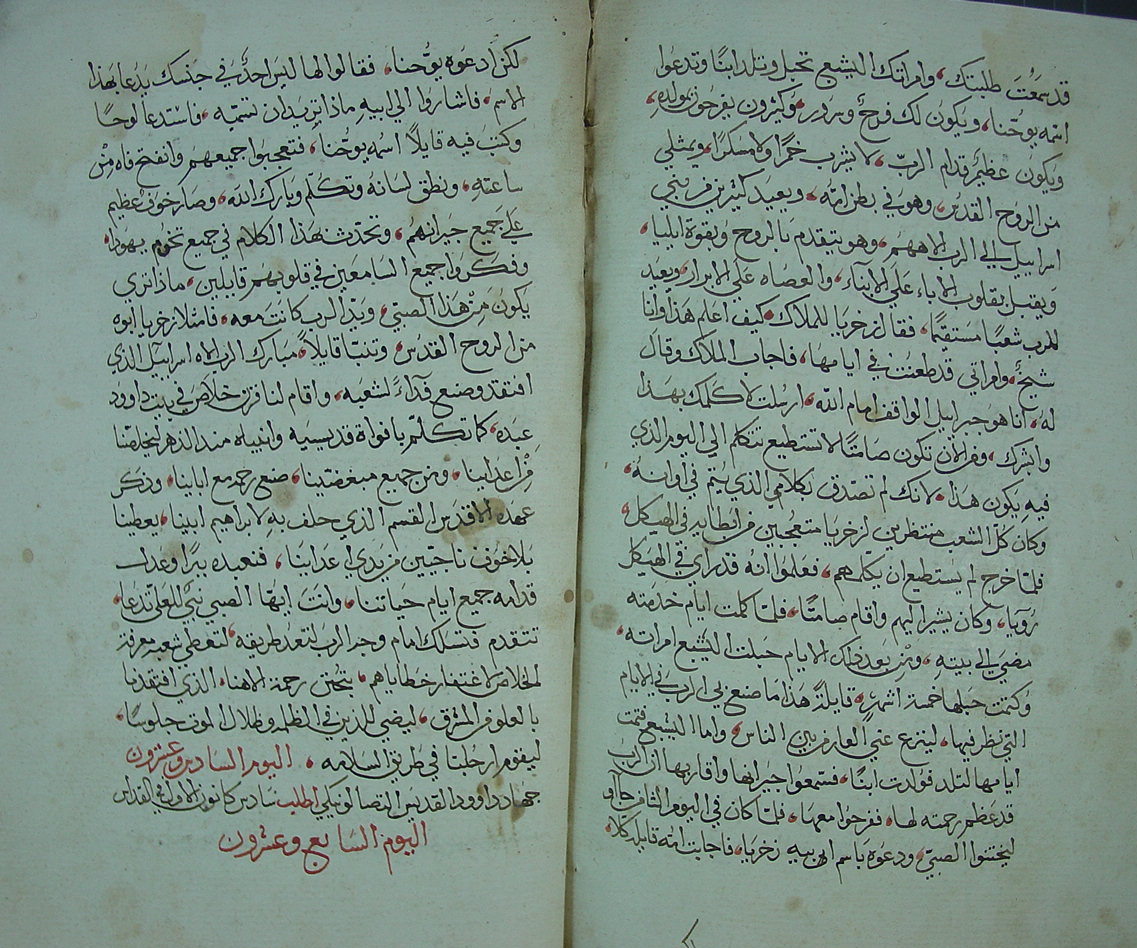 قد سمعت طلبتك، وامراتك اليشبع تحبل وتلد ابنًا وتدعوا
اسمه يوحنا، ويكون لك فرحٌ وسرور، وكثيرون يفرحون بمولده،
ويكون عظيمٌ قدام الربّ، لا يشرب خمرًا ولا مسكرًا، ويمتلي
من الروح القدس، وهو في بطن امّه، ويعيد كثيرين من بني
اسراييل الي الرب الاههم، وهو يتقدم بالروح وبقوة ايليا،
ويقبل بقلوب الاباء علي الابناء، والعصاه علي الابرار، ويعيد
للرب شعبًا مستقيمًا، فقال زخريا للملاك، كيف اعلم هذا وانا
شيخٌ، وامراتي قد طعنت في ايامها، فاجاب الملاك وقال
له، انا هو جبراييل الواقف امام الله، ارسلت لاكلمك بهذا
وابشرك، ومن الان تكون صامتًا لا تستطيع تتكلم الي اليوم الذي
فيه يكون هذا، لانك لم تصدق بكلامي الذي يتم في اوانه،
وكان كلّ الشعب منتظرين لزخريا متعجبين من ابطايه في الهيكل،
فلمّا خرج لم يستطيع ان يكلمهم، فعلموا انه قد راي في الهيكل
رويا، وكان يشير اليهم واقام صامتًا، فلمّا كملت ايام خدمته
مضي الي بيته، ومن بعد ذلك الايام حبلت اليشبع امراته،
وكتمت حبلها خمسة اشهرٍ، قايلةً هذا ما صنع بي الرب في الايام
التي نظر فيها، لينزع عني العار من بين الناس، واما اليشبع فتمت
ايامها لتلد فولدت ابنًا، فسمعوا جيرانها واقاربها ان الرب
قد عظم رحمته لها، ففرحوا معها، فلمّا كان في اليوم الثامن جاوا
ليختنوا الصبيّ، ودعوه باسم ابيه زخريا، فاجابت امه قايله كلا،
لكن ادعوه يوحُّنا، فقالوا لها ليس احدٌ في جنسك يدعا بهذا
الاسم، فاشاروا الي ابيه ماذا تريد ان تسميّه، فاستدعا لوحًا
وكتب فيه قايلاً اسمه يوحُنا، فتعجبوا جميعهم وانفتح فاه من
ساعتهِ، ونطق لسانهُ وتكلم وبارك الله، وصار خوفٌ عظيم
علي جميع جيرانهم، وتحدث بهذا الكلام في جميع تخوم يهودا،
وفكروا جميع السامعين في قلوبهم قايلين، ماذا تري
يكون من هذا الصبيّ، ويد الرب كانت معه، فامتلا زخريا ابوه
من الروح القدس، وتنبّا قايلاً، مبارك الرب الاه اسراييل الذي
افتقد وصنع فدآءً لشعبه، واقام لنا قرن خلاص في بيت داوود
عبده، كما تكلّم بافواه قديسيه وانبياه منذ الدهر ليخلصنا
من اعداينا، ومن جميع مبغضينا، صنع رحمه مع اباينا، وذكر
عهده الاقدس القسم الذي حلف به لابراهيم ابينا، يعطينا
بلا خوف ناجيين من يدي اعداينا، فنعبده ببرًا وعدل
قدامه جميع ايام حياتنا، وانت ايها الصبي نبي للعلي تدعا،
تتقدم فتسلك امام وجه الرب لتعد طريقه لتعطي شعبه معرفة
الخلاص لاغتفار خطاياهم، بتحنن رحمة الاهنا، الذي افتقدنا
بالعلو من المشرق، ليضي للذين في الظلمه وظلال الموت جلوسًا،
ليقوم ارجلنا في طريق السلامه، اليوم السادس وعشرون
جهاد داوود القديس التصالونيكي اطلب سادس كانون الاول في القداس
اليوم السابع وعشرون